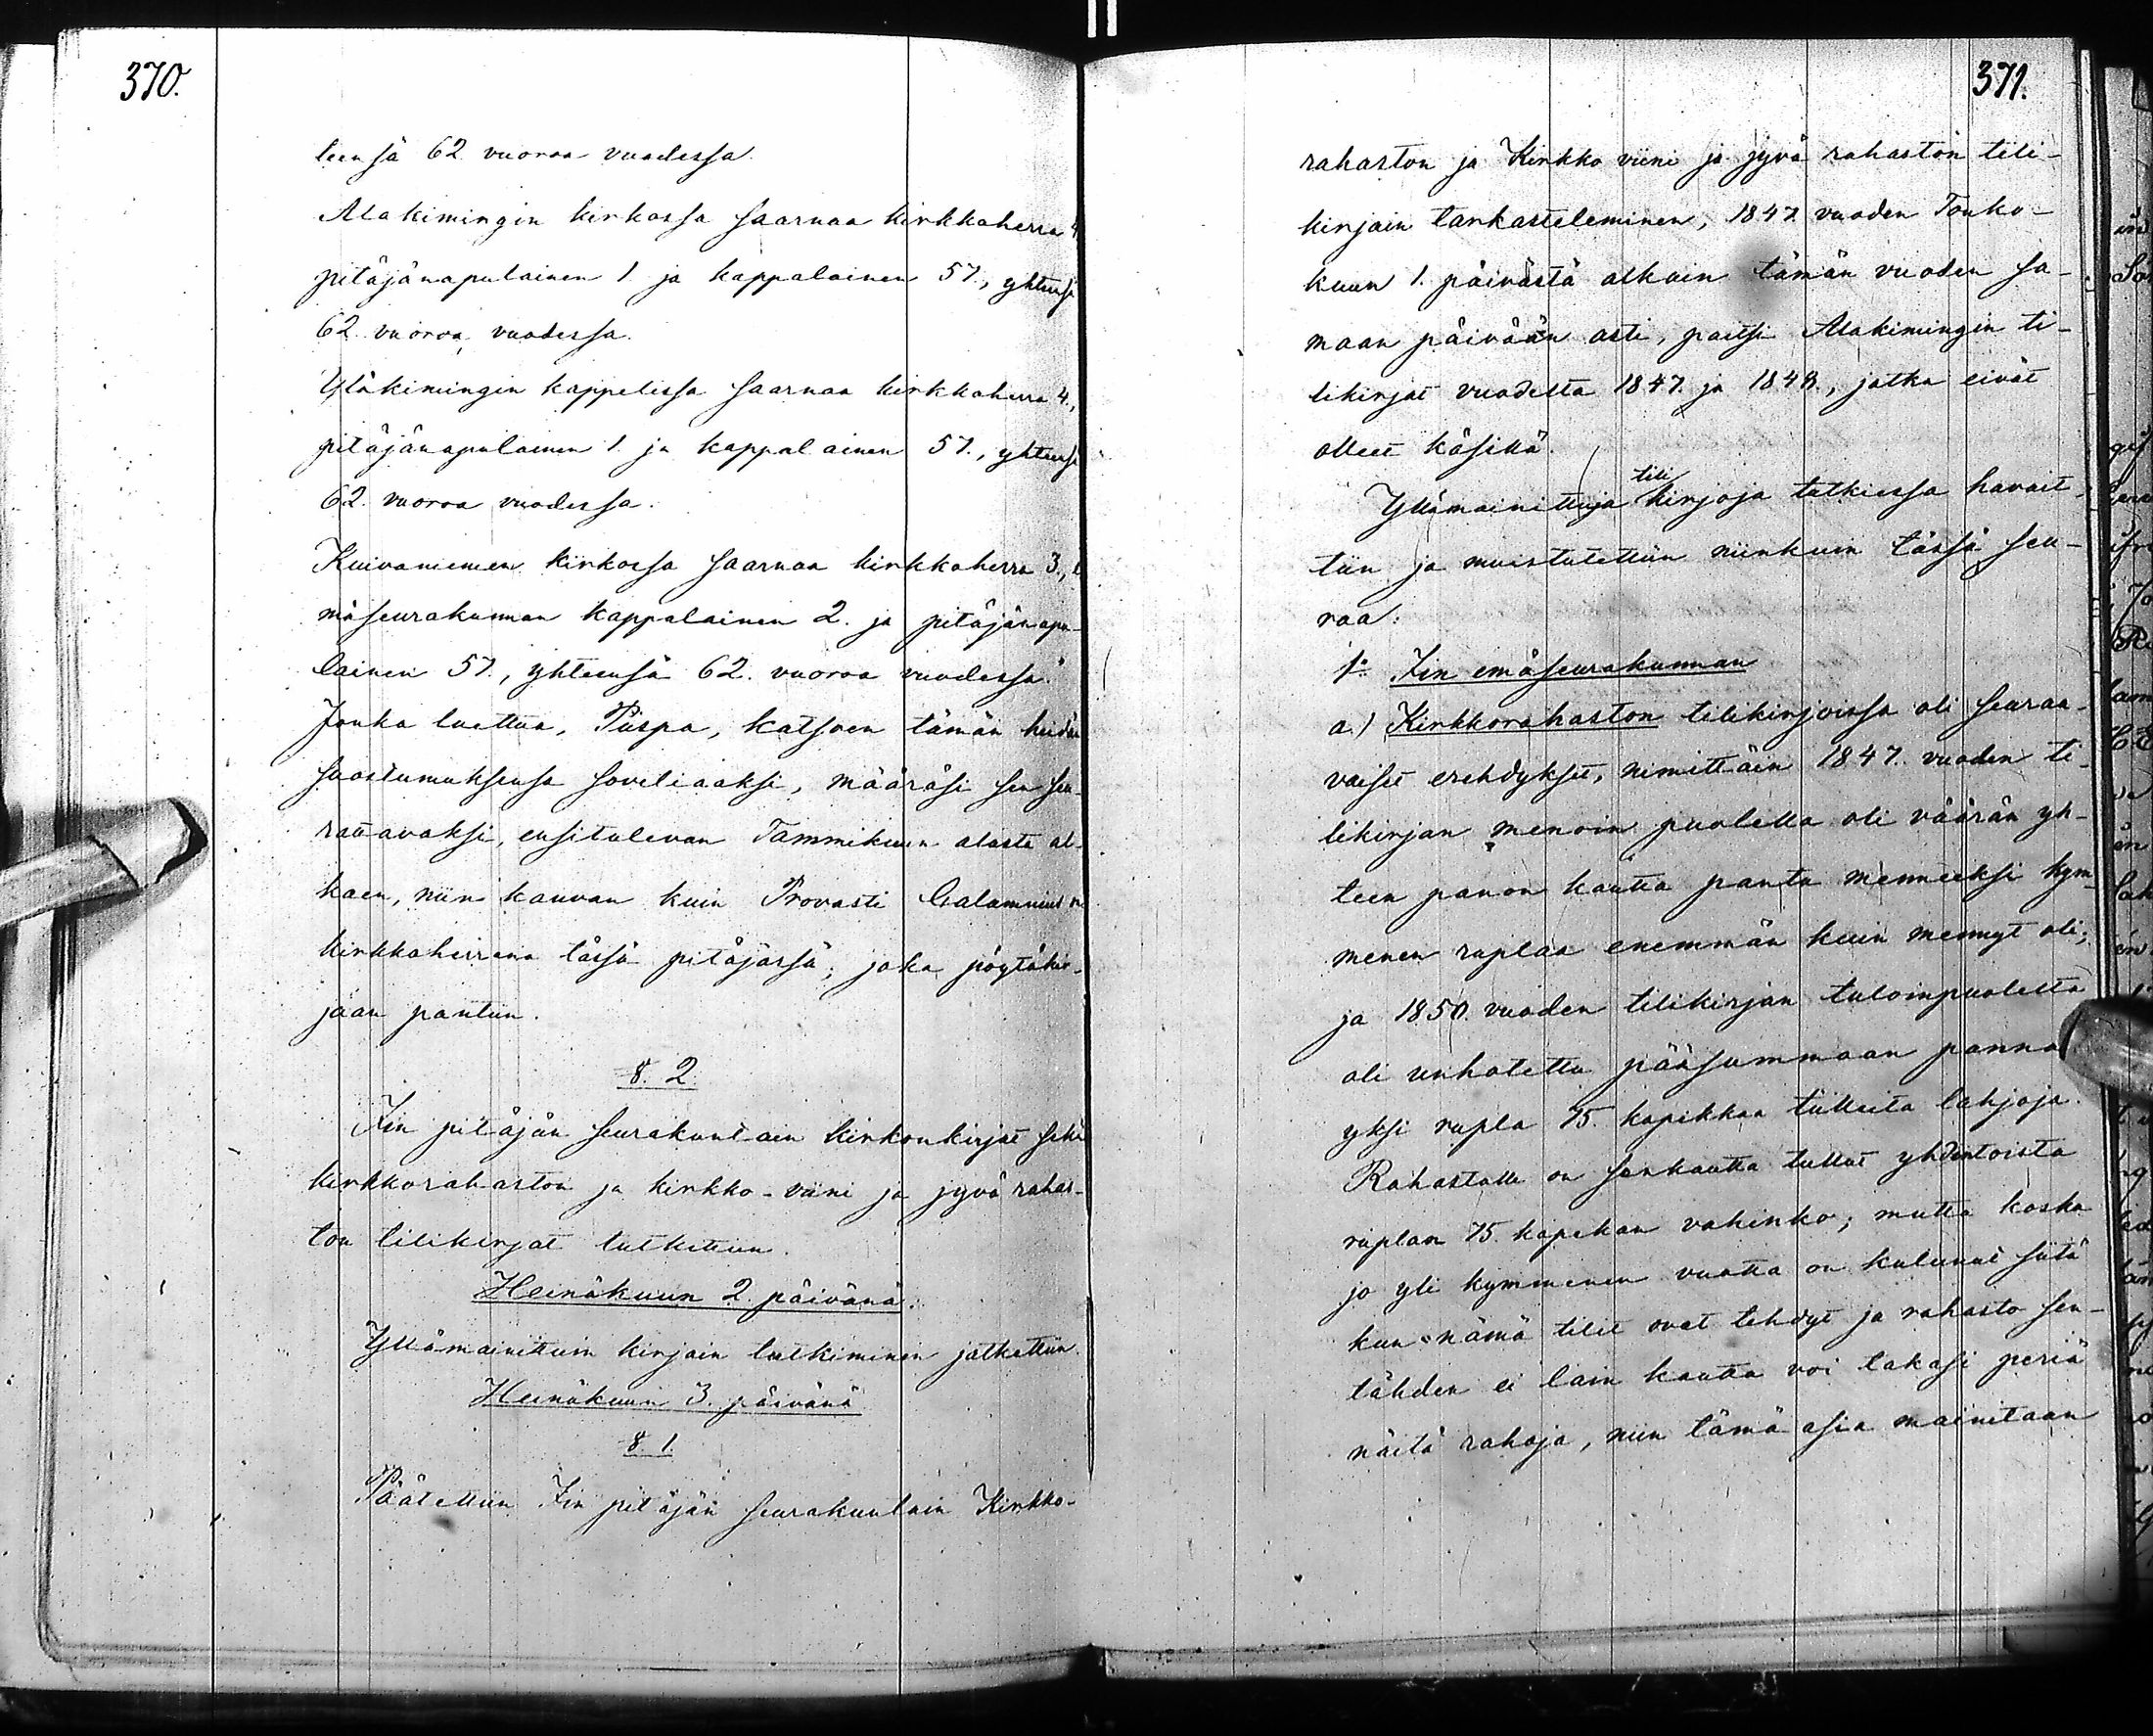 370.
teensä 62. vuoroa vuodessa.
Alakimingin kirkossa saarnaa kirkkoherra 4
pitäjänapulainen 1 ja kappalainen 57., yhteensä
62. vuoroa, vuodessa.
Yläkimingin kappelissa saarnaa kirkkoherra 4.,
pitäjänapulainen 1. ja kappalainen 57., yhteensä
62. vuoroa vuodessa.
Kuivaniemen kirkossa saarnaa kirkkoherra 3., e
mäseurakunnan kappalainen 2. ja pitäjänapu-
lainen 57., yhteensä 62. vuoroa vuodessa.
Jonka luettua, Piispa, katsoen tämän heidän
suostumuksensa soveliaaksi, määräsi sen seu-
rattavaksi, ensitulevan Tammikuun alusta al-
kaen, niin kauvan kuin Provasti Calamnius on
kirkkoherrana tässä pitäjässä; joka pöytäkir-
jaan pantiin.
§. 2.
Iin pitäjän seurakuntain kirkonkirjat sekä
kirkkorahaston ja kirkko-viini ja jyvä rahas-
ton tilikirjat tutkittiin.
Heinäkuun 2. päivänä.
Yllämainittuin kirjain tutkiminen jatkettiin.
Heinäkuun 3. päivänä
§. 1.
Päätettiin Iin pitäjän seurakuntain Kirkko-
371.
rahaston ja Kirkko viini ja jyvä rahaston tili-
kirjain tarkasteleminen, 1847. vuoden Touko-
kuun 1. päivästä alkain tämän vuoden sa-
maan päivään asti, paitsi Alakimingin ti-
likirjat vuodelta 1847. ja 1848., jotka eivät
olleet käsillä.
Yllämainittuja tili kirjoja tutkiessa havait-
tiin ja muistutettiin niinkuin tässä seu-
raa:
1:o Iin emäseurakunnan
a.) Kirkkorahaston tilikirjoissa oli seuraa-
vaiset erehdykset, nimittäin 1847. vuoden ti-
likirjan menoin puolella oli väärän yh-
teen panon kautta pantu menneeksi kym-
menen ruplaa enemmän kuin mennyt oli;
ja 1850. vuoden tilikirjan tuloinpuolella
oli unhotettu pääsummaan panna
yksi rupla 75. kopikkaa tulleita lahjoja.
Rahastolle on senkautta tullut yhdentoista
ruplan 75. kopekan vahinko; mutta koska
jo yli kymmenen vuotta on kulunut siitä
kun nämä tilit ovat tehdyt ja rahasto sen-
tähden ei lain kautta voi takasi periä
näitä rahoja, niin tämä asia mainitaan